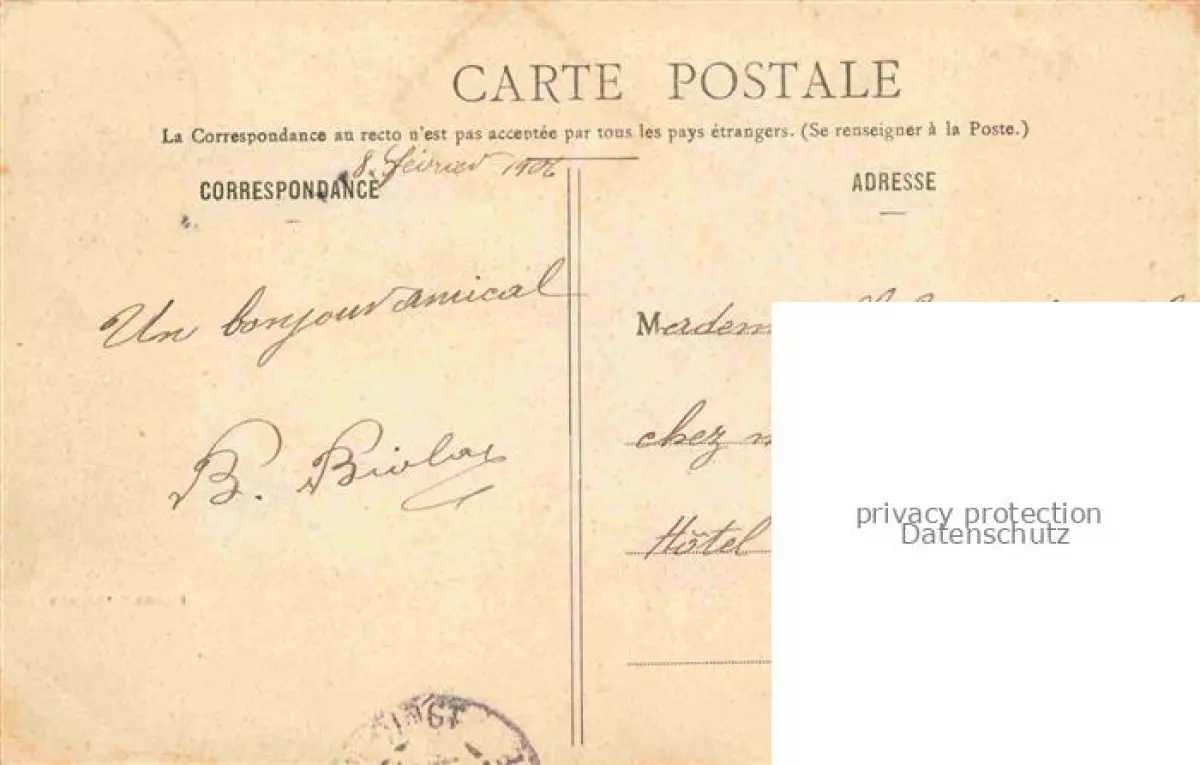 CARTE POSTALE
La Correspondance au recto n'est pas acceptée par tous les pays étrangers. (Se renseigner à la Poste.)
8. février 1906
CORRESPONDANCE
ADRESSE
Un bonjour amical
B. Biolay
chez
Hôtel
privacy protection
Datenschutz